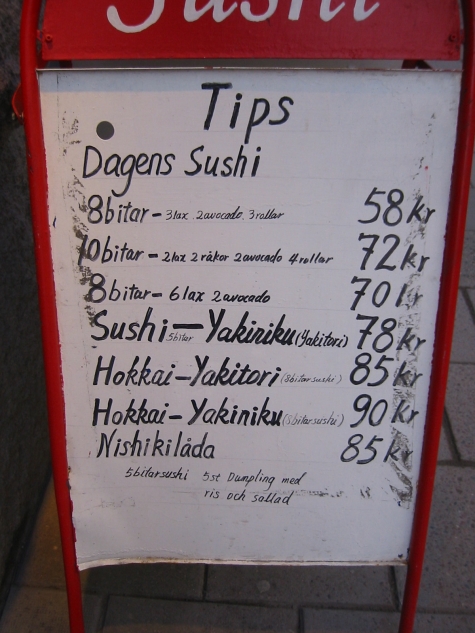 Sushi
Tips
Dagens Sushi
8bitar - 3lax 2avocado 3rollar 58 kr
10bitar - 2lax 2räkor 2avocado 4rollar 72 kr
8bitar - 6lax 2avocado 70 kr
Sushi 5bitar — Yakiniku (Yakitori) 78 kr
Hokkai - Yakitori (8bitar sushi) 85 kr
Hokkai - Yakiniku (8bitar sushi) 90 kr
Nishikilåda 85 kr
5bitar sushi 5st Dumpling med
ris och sallad